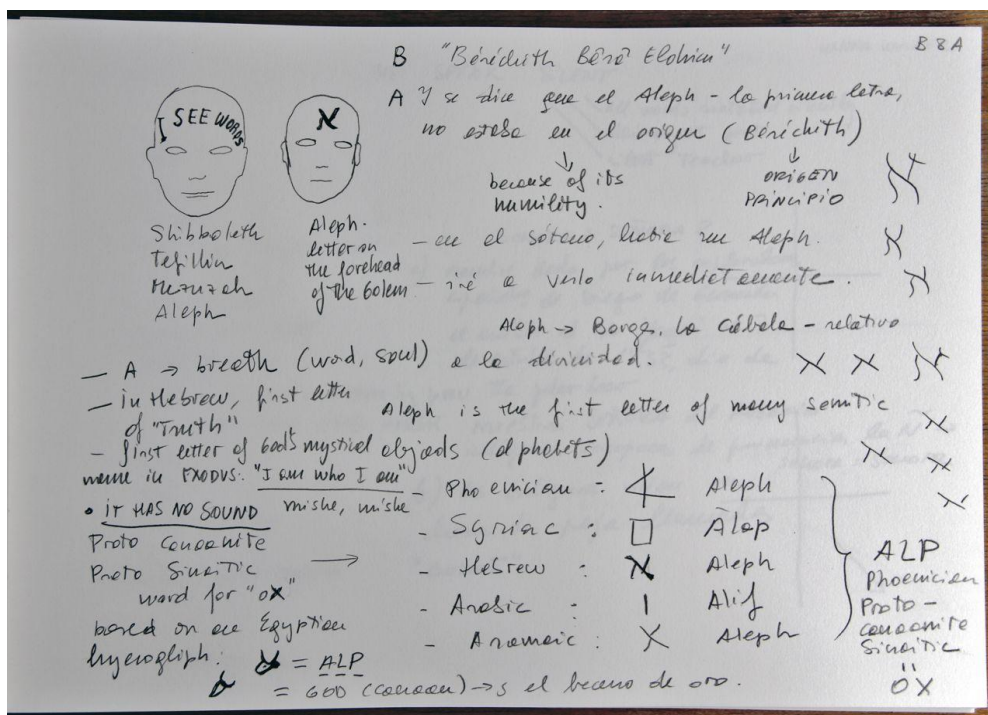 B 8 A
B "Béréchith Bérá Elohim"
A Y se dice que el Aleph - la primera letra,
no estaba en el origen (Béréchith)
↓ ↓
because of its
humility.
ORIGEN
PRINCIPIO
I SEE WORDS
א
Shibboleth
Tefillin
Mezuzah
Aleph
Aleph.
letter on
the forehead
of the Golem
- en el sótano, había un Aleph.
- iré a verlo inmediatamente.
Aleph → Borges, la Cábala - relativo
a la divinidad.
- A → breath (word, soul)
- in Hebrew, first letter
of "Truth"
- first letter of God's
name in EXODUS: "I am who I am"
Aleph is the first letter of many semitic
mystical abjads (alphabets)
mishe, mishe
• IT HAS NO SOUND
Proto canaanite
Proto Sinaitic →
word for "ox"
based on an Egyptian
hyerogliph:
= ALP
= GOD (canaan) → s el becerro de oro.
- Phoenician : Aleph
- Syriac : Álap
- Hebrew : א Aleph
- Arabic : ا Alif
- Aramaic : Aleph
ALP
Phoenician
Proto-
canaanite
Sinaitic
"
OX